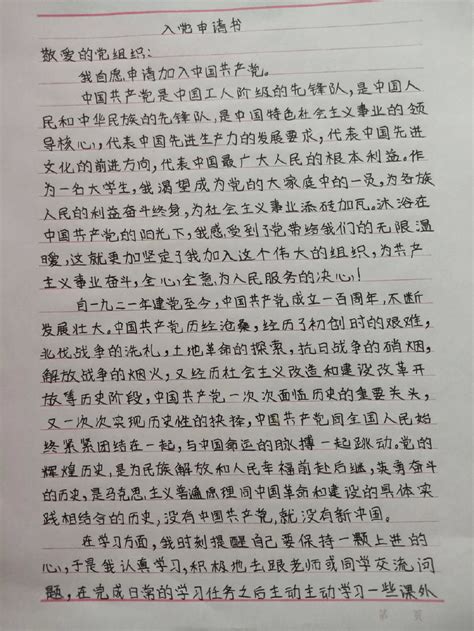 入党申请书
敬爱的党组织:
我自愿申请加入中国共产党。
中国共产党是中国工人阶级的先锋队,是中国人
民和中华民族的先锋队,是中国特色社会主义事业的领
导核心,代表中国先进生产力的发展要求,代表中国先进
文化的前进方向,代表中国最广大人民的根本利益。作
为一名大学生,我渴望成为党的大家庭中的一员,为各族
人民的利益奋斗终身,为社会主义事业添砖加瓦。沐浴在
中国共产党的阳光下,我感受到了党带给我们的无限温
暖,这就更加坚定了我加入这个伟大的组织,为共产
主义事业奋斗,全心全意为人民服务的决心!
自一九二一年建党至今,中国共产党成立一百周年,不断
发展壮大。中国共产党历经沧桑,经历了初创时的艰难,
北伐战争的洗礼,土地革命的探索,抗日战争的硝烟,
解放战争的烟火,又经历社会主义改造和建设改革开
放等历史阶段,中国共产党一次次面临历史的重要关头,
又一次次实现历史性的抉择,中国共产党同全国人民始
终紧紧团结在一起,与中国命运的脉搏一起跳动。党的
辉煌历史,是为民族解放和人民幸福前赴后继,英勇奋斗
的历史,是马克思主义普遍原理同中国革命和建设的具体实
践相结合的历史,没有中国共产党,就没有新中国。
在学习方面,我时刻提醒自己要保持一颗上进的
心,于是我认真学习,积极地去跟老师或同学交流问
题,在完成日常的学习任务之后主动主动学习一些课外
第 页